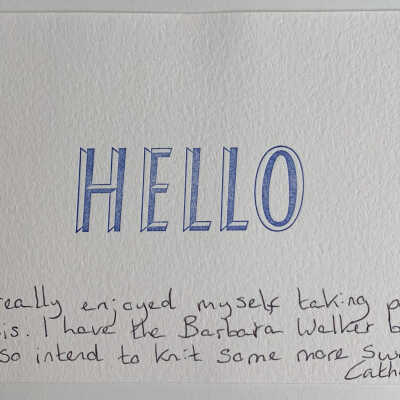 HELLO
really enjoyed myself taking
is. I have the Barbara Walker
so intend to knit some more